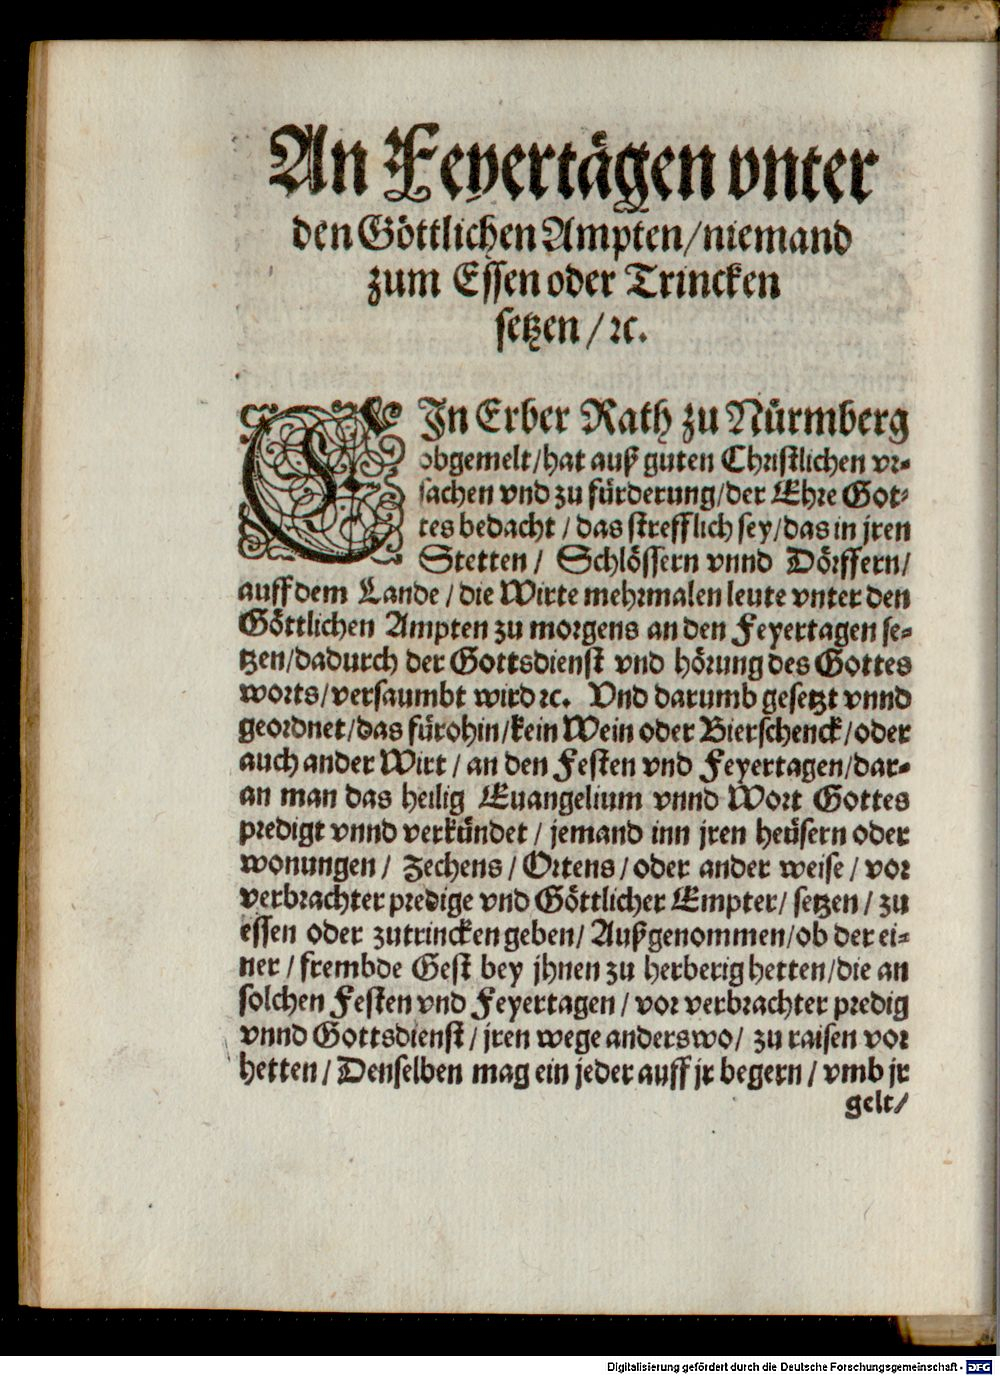 An Feyertägen vnter
den Göttlichen Ampten/niemand
zum Essen oder Trincken
setzen/ꝛc.
EIn Erber Rath zu Nürmberg
obgemelt/hat auß guten Christlichen vr-
sachen vnd zu fürderung/der Ehre Got-
tes bedacht/das strefflich sey/das in jren
Stetten/ Schlössern vnnd Dörffern/
auff dem Lande/die Wirte mehrmalen leute vnter den
Göttlichen Ampten zu morgens an den Feyertagen se-
tzen/dadurch der Gottsdienst vnd hörung des Gottes
worts/versaumbt wird ꝛc. Vnd darumb gesetzt vnnd
geordnet/das fürohin/kein Wein oder Bierschenck/oder
auch ander Wirt/an den Festen vnd Feyertagen/dar-
an man das heilig Euangelium vnnd Wort Gottes
predigt vnnd verkündet/jemand inn jren heüsern oder
wonungen/ Zechens/Ortens/oder ander weise/vor
verbrachter predige vnd Göttlicher Empter/setzen/zu
essen oder zutrincken geben/Außgenommen/ob der ei-
ner/frembde Gest bey jhnen zu herberig hetten/die an
solchen Festen vnd Feyertagen/vor verbrachter predig
vnnd Gottsdienst/jren wege anderswo/ zu raisen vor
hetten/Denselben mag ein jeder auff jr begern/vmb jr
gelt/
Digitalisierung gefördert durch die Deutsche Forschungsgemeinschaft - DFG